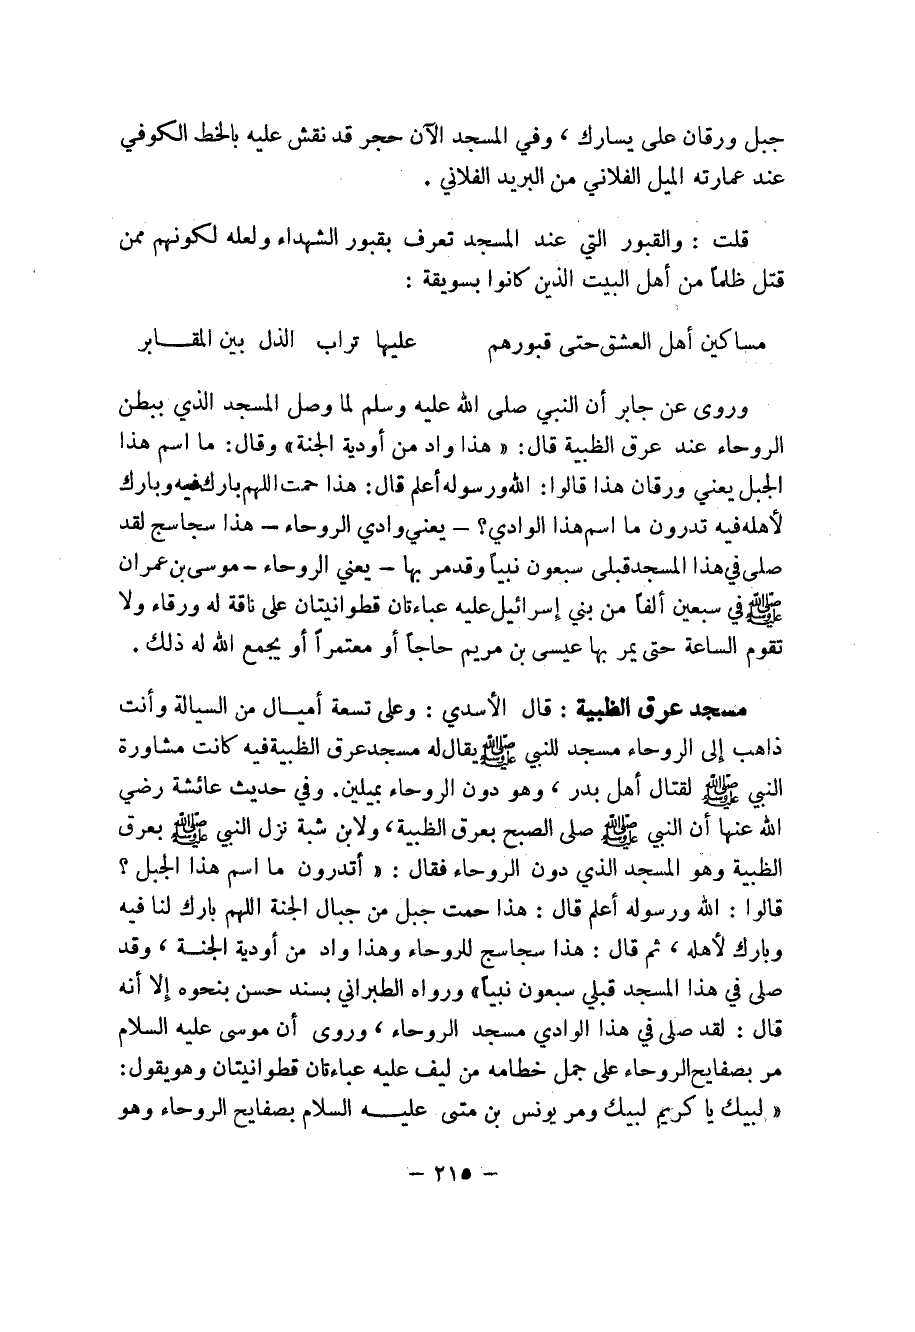 جبل ورقان على يسارك ، وفي المسجد الآن حجر قد نقش عليه بالخط الكوفي
عند عمارته الميل الفلاني من البريد الفلاني .
قلت : والقبور التي عند المسجد تعرف بقبور الشهداء ولعله لكونهم ممن
قتل ظلماً من أهل البيت الذين كانوا بسويقة :
مساكين أهل العشق حتى قبورهم عليها تراب الذل بين المقـــابر
وروى عن جابر أن النبي صلى الله عليه وسلم لما وصل المسجد الذي ببطن
الروحاء عند عرق الظبية قال: « هذا واد من أودية الجنة» وقال: ما اسم هذا
الجبل يعني ورقان هذا قالوا: الله ورسوله أعلم قال: هذا حمت اللهم بارك فيه وبارك
لأهله فيه تدرون ما اسم هذا الوادي؟ - يعني وادي الروحاء - هذا سجاسج لقد
صلى في هذا المسجد قبلى سبعون نبياً وقد مر بها - يعني الروحاء - موسى بن عمران
ﷺ في سبعين ألفاً من بني إسرائيل عليه عباءتان قطوانيتان على ناقة له ورقاء ولا
تقوم الساعة حتى يمر بها عيسى بن مريم حاجاً أو معتمراً أو يجمع الله له ذلك .
مسجد عرق الظبية : قال الأسدي : وعلى تسعة أميـــال من السيالة وأنت
ذاهب إلى الروحاء مسجد للنبي ﷺ يقال له مسجد عرق الظبية فيه كانت مشاورة
النبي ﷺ لقتال أهل بدر ، وهو دون الروحاء بميلين. وفي حديث عائشة رضي
الله عنها أن النبي ﷺ صلى الصبح بعرق الظبية، ولابن شبة نزل النبي ﷺ بعرق
الظبية وهو المسجد الذي دون الروحاء فقال : « أتدرون ما اسم هذا الجبل ؟
قالوا : الله ورسوله أعلم قال : هذا حمت جبل من جبال الجنة اللهم بارك لنا فيه
وبارك لأهله ، ثم قال : هذا سجاسج للروحاء وهذا واد من أودية الجنـــة ، وقد
صلى في هذا المسجد قبلي سبعون نبياً» ورواه الطبراني بسند حسن بنحوه إلا أنه
قال : لقد صلى في هذا الوادي مسجد الروحاء ، وروى أن موسى عليه السلام
مر بصفايح الروحاء على جمل خطامه من ليف عليه عباءتان قطوانيتان وهو يقول:
« لبيك يا كريم لبيك ومر يونس بن متى عليـــه السلام بصفايح الروحاء وهو
- ٢١٥ -